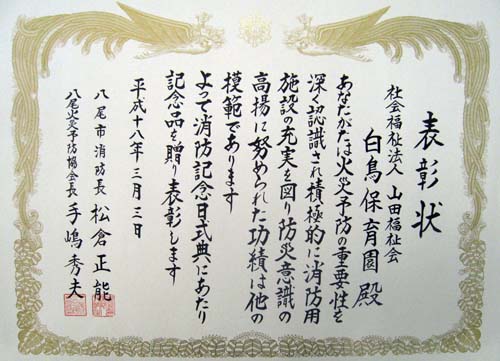 表彰状
社会福祉法人 山田福祉会
白鳥保育園 殿
あなたがたは火災予防の重要性を
深く認識され積極的に消防用
施設の充実を図り防災意識の
高揚に努められた功績は他の
模範であります
よって消防記念日式典にあたり
記念品を贈り表彰します
平成十八年三月三日
八尾市消防長 松倉正能
八尾火災予防協会長 手嶋秀夫